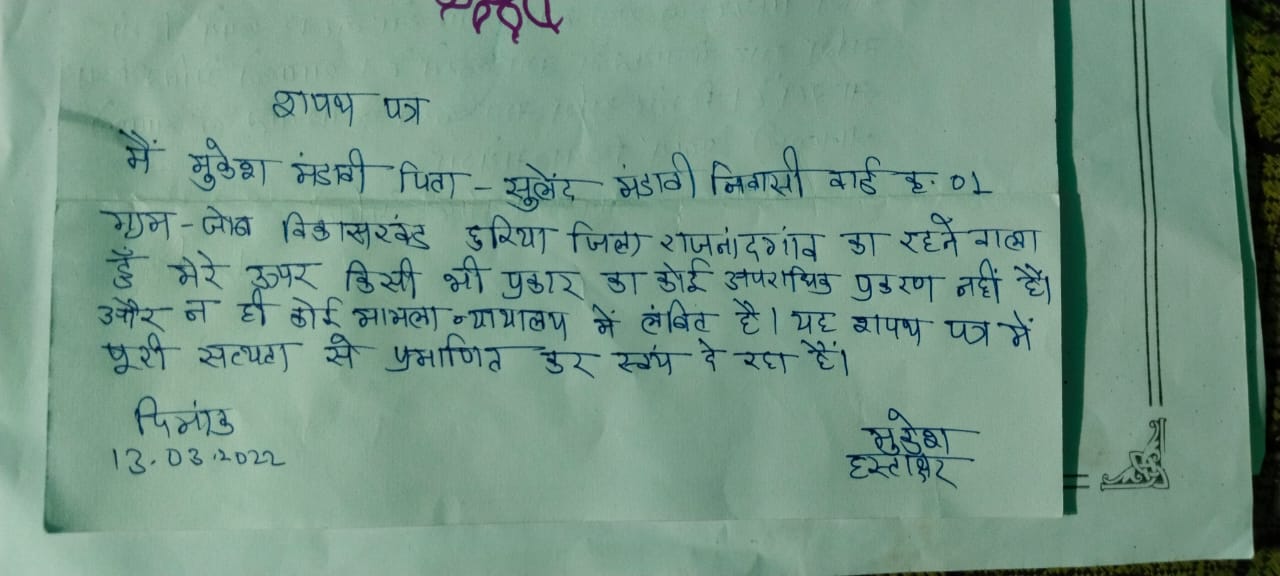 शपथ पत्र
मैं मुकेश मंडावी पिता - सुलेंद मंडावी निवासी वार्ड क्र. 01
ग्राम - जोब विकासखंड छुरिया जिला राजनांदगांव का रहने वाला
हूँ मेरे ऊपर किसी भी प्रकार का कोई अपराधिक प्रकरण नहीं है।
और न ही कोई मामला न्यायालय में लंबित है। यह शपथ पत्र में
पूरी सत्यता से प्रमाणित कर स्वंय दे रहा हैं।
दिनांक
13.03.2022
मुकेश
हस्ताक्षर